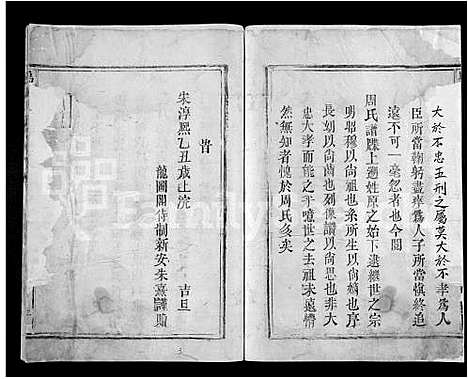 大於不忠五刑之屬莫大於不孝爲人
臣所當鞠躬盡瘁爲人子所當愼終追
遠不可一毫忽者也今閱
周氏譜牒上遡姓原之始下逮繼世之宗
明昭穆以尚祖糸所生以尚嫡也序
長幼以尚齒也列像讃以尚思也非大
忠大孝而能之乎噫世之去祖未遠情
然無知者愧於周氏多矣
旹
宋淳熙乙丑歲上浣 吉旦
龍圖閣待制新安朱熹謹